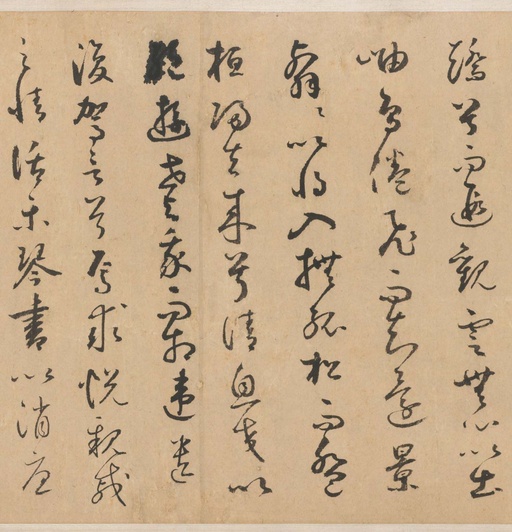 矯首而遐觀雲無心以出
岫鳥倦飛而知還景
翳翳以將入撫孤松而盤
桓歸去來兮請息交以
遊世與我而相違遺
復駕言兮焉求悅親戚
之情話樂琴書以消憂